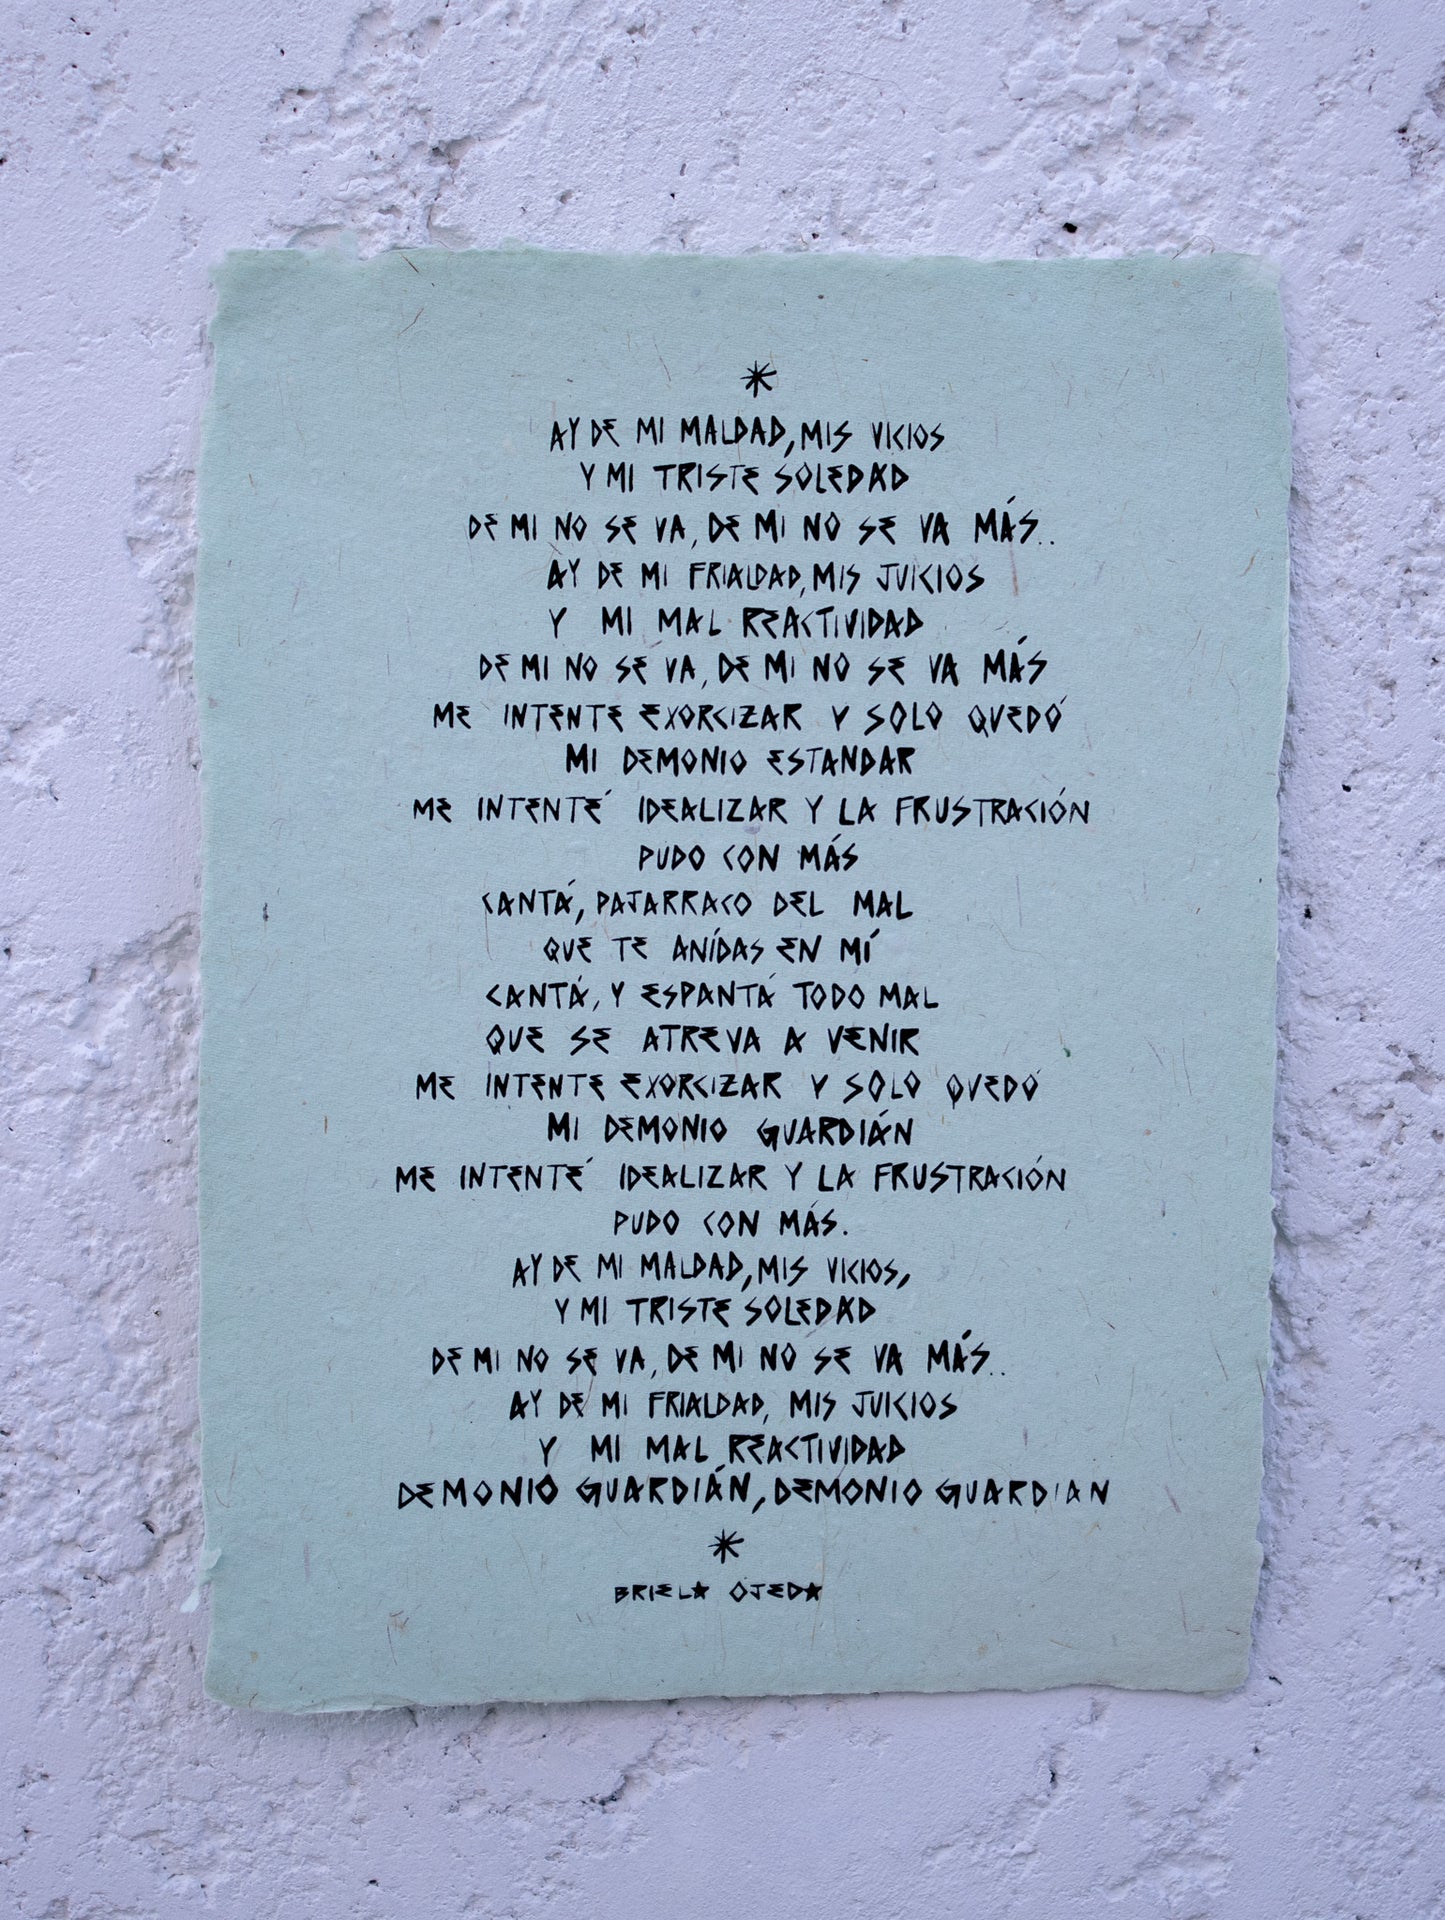 AY DE MI MALDAD, MIS VICIOS
Y MI TRISTE SOLEDAD
DE MI NO SE VA, DE MI NO SE VA MÁS..
AY DE MI FRIALDAD, MIS JUICIOS
Y MI MAL REACTIVIDAD
DE MI NO SE VA, DE MI NO SE VA MÁS
ME INTENTE EXORCIZAR Y SOLO QUEDÓ
MI DEMONIO ESTANDAR
ME INTENTÉ IDEALIZAR Y LA FRUSTRACIÓN
PUDO CON MÁS
CANTÁ, PAJARRACO DEL MAL
QUE TE ANÍDAS EN MÍ
CANTÁ, Y ESPANTÁ TODO MAL
QUE SE ATREVA A VENIR
ME INTENTE EXORCIZAR Y SOLO QUEDÓ
MI DEMONIO GUARDIÁN
ME INTENTÉ IDEALIZAR Y LA FRUSTRACIÓN
PUDO CON MÁS.
AY DE MI MALDAD, MIS VICIOS,
Y MI TRISTE SOLEDAD
DE MI NO SE VA, DE MI NO SE VA MÁS..
AY DE MI FRIALDAD, MIS JUICIOS
Y MI MAL REACTIVIDAD
DEMONIO GUARDIÁN, DEMONIO GUARDIAN
BRIELA OJEDA